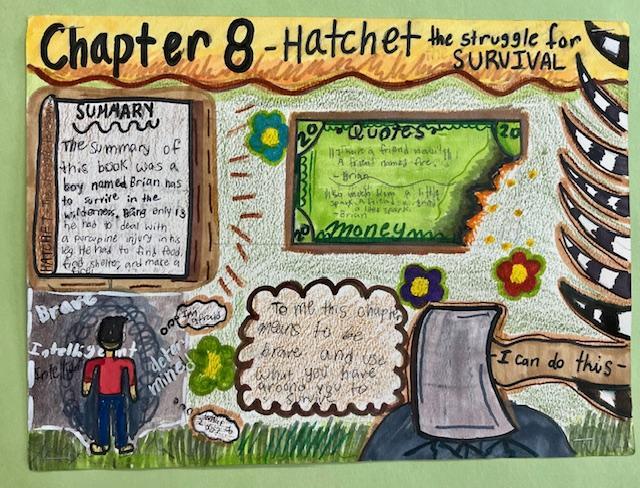 Chapter 8 - Hatchet the struggle for
SURVIVAL
SUMMARY
The summary of
this book was a
boy named Brian has
to survive in the
wilderness, Being only 13
he had to deal with
a porcupine injury in his
leg. He had to find food,
find shelter, and make a
HATCHET
20
Quotes
20
A friend named fire.
- Brian
- Brian
20
Money
Brave
Intelligent
determined
I'm
afraid
To me this chapter
means to be
brave and use
what you have
around you to
survive
- I can do this -